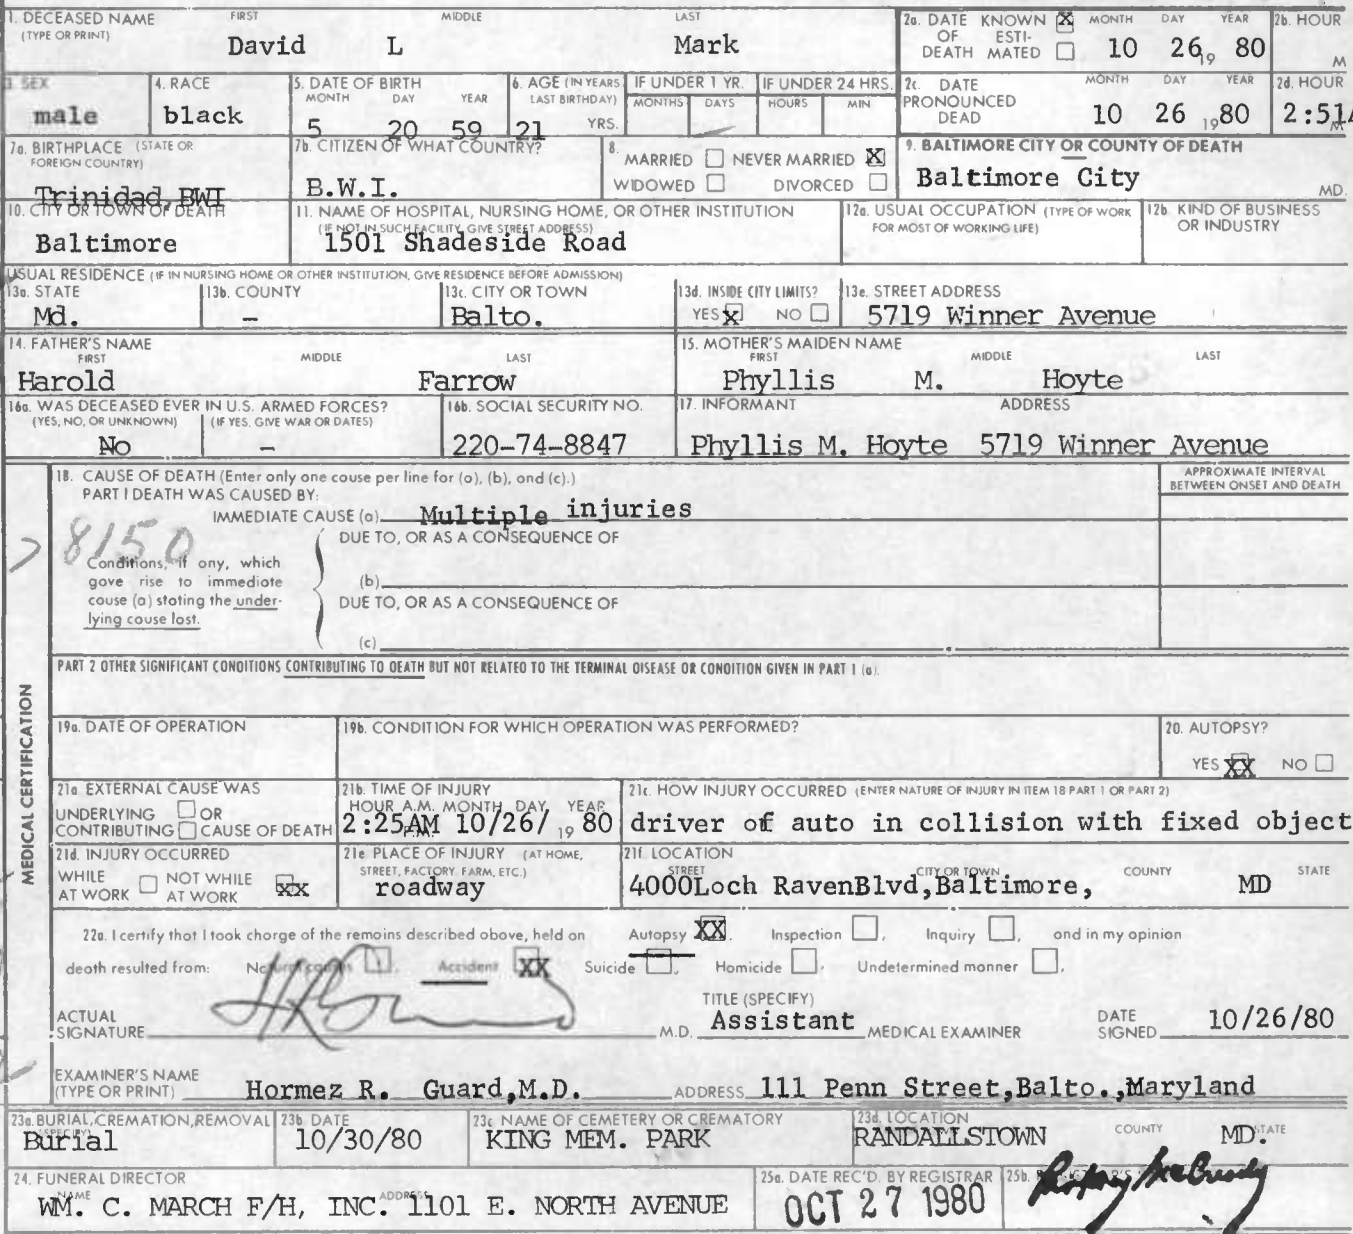 1. DECEASED NAME FIRST MIDDLE LAST
(TYPE OR PRINT)
David L Mark
2a. DATE OF DEATH KNOWN X ESTI-MATED MONTH DAY YEAR
10 26, 19 80
2b. HOUR M
3. SEX
male
4. RACE
black
5. DATE OF BIRTH
MONTH DAY YEAR
5 20 59
6. AGE (IN YEARS LAST BIRTHDAY)
21 YRS.
IF UNDER 1 YR.
MONTHS DAYS
IF UNDER 24 HRS.
HOURS MIN
2c. DATE PRONOUNCED DEAD MONTH DAY YEAR
10 26 1980
2d. HOUR
2:51A
M
7a. BIRTHPLACE (STATE OR FOREIGN COUNTRY)
Trinidad, BWI
7b. CITIZEN OF WHAT COUNTRY?
B.W.I.
8. MARRIED NEVER MARRIED X
WIDOWED DIVORCED
9. BALTIMORE CITY OR COUNTY OF DEATH
Baltimore City MD.
10. CITY OR TOWN OF DEATH
Baltimore
11. NAME OF HOSPITAL, NURSING HOME, OR OTHER INSTITUTION
(IF NOT IN SUCH FACILITY, GIVE STREET ADDRESS)
1501 Shadeside Road
12a. USUAL OCCUPATION (TYPE OF WORK FOR MOST OF WORKING LIFE)
12b. KIND OF BUSINESS OR INDUSTRY
USUAL RESIDENCE (IF IN NURSING HOME OR OTHER INSTITUTION, GIVE RESIDENCE BEFORE ADMISSION)
13a. STATE
Md.
13b. COUNTY
–
13c. CITY OR TOWN
Balto.
13d. INSIDE CITY LIMITS?
YES X NO
13e. STREET ADDRESS
5719 Winner Avenue
14. FATHER'S NAME
FIRST MIDDLE LAST
Harold Farrow
15. MOTHER'S MAIDEN NAME
FIRST MIDDLE LAST
Phyllis M. Hoyte
16a. WAS DECEASED EVER IN U.S. ARMED FORCES?
(YES, NO, OR UNKNOWN) (IF YES, GIVE WAR OR DATES)
No –
16b. SOCIAL SECURITY NO.
220-74-8847
17. INFORMANT ADDRESS
Phyllis M. Hoyte 5719 Winner Avenue
MEDICAL CERTIFICATION
18. CAUSE OF DEATH (Enter only one couse per line for (a), (b), and (c).)
PART I DEATH WAS CAUSED BY:
IMMEDIATE CAUSE (a) Multiple injuries
APPROXIMATE INTERVAL BETWEEN ONSET AND DEATH
8150
DUE TO, OR AS A CONSEQUENCE OF
Conditions, if any, which
gove rise to immediote
couse (a) stoting the under-
lying couse lost.
(b)
DUE TO, OR AS A CONSEQUENCE OF
(c)
PART 2 OTHER SIGNIFICANT CONDITIONS CONTRIBUTING TO DEATH BUT NOT RELATED TO THE TERMINAL DISEASE OR CONDITION GIVEN IN PART 1 (a).
19a. DATE OF OPERATION
19b. CONDITION FOR WHICH OPERATION WAS PERFORMED?
20. AUTOPSY?
YES XX NO
21a. EXTERNAL CAUSE WAS
UNDERLYING OR
CONTRIBUTING CAUSE OF DEATH
21b. TIME OF INJURY
HOUR A.M. MONTH DAY YEAR
P.M.
2:25AM 10/26/ 19 80
21c. HOW INJURY OCCURRED (ENTER NATURE OF INJURY IN ITEM 18 PART 1 OR PART 2)
driver of auto in collision with fixed object
21d. INJURY OCCURRED
WHILE AT WORK NOT WHILE AT WORK xx
21e. PLACE OF INJURY (AT HOME, STREET, FACTORY, FARM, ETC.)
roadway
21f. LOCATION
STREET CITY OR TOWN COUNTY STATE
4000Loch RavenBlvd,Baltimore, MD
22a. I certify that I took charge of the remoins described obove, held on Autopsy XX, Inspection , Inquiry , ond in my opinion
deoth resulted from: Noturol couses , Accident XX Suicide , Homicide , Undetermined monner .
ACTUAL SIGNATURE M.D.
TITLE (SPECIFY)
Assistant MEDICAL EXAMINER
DATE SIGNED 10/26/80
EXAMINER'S NAME
(TYPE OR PRINT) Hormez R. Guard,M.D. ADDRESS 111 Penn Street,Balto.,Maryland
23a. BURIAL, CREMATION, REMOVAL
(SPECIFY)
Burial
23b. DATE
10/30/80
23c. NAME OF CEMETERY OR CREMATORY
KING MEM. PARK
23d. LOCATION COUNTY STATE
RANDALLSTOWN MD.
24. FUNERAL DIRECTOR
NAME ADDRESS
WM. C. MARCH F/H, INC. 1101 E. NORTH AVENUE
25a. DATE REC'D. BY REGISTRAR
OCT 27 1980
25b.